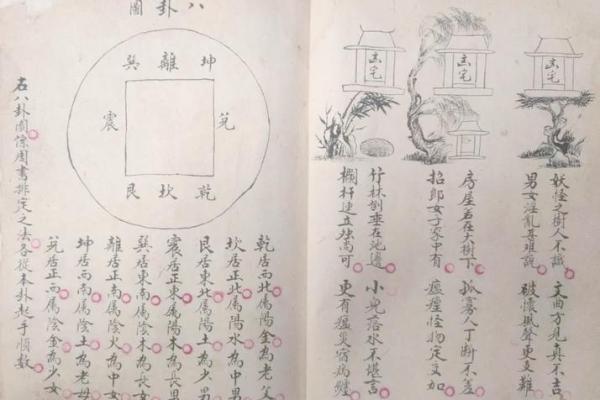 妖怪之樹人不識 文曲方見真不吉
男女淫亂甚难説 破懷風聲更又難
房屋若在大樹下 孤寡人丁斷不差
招郎女子家中有 怪物定交加
竹林倒垂在池邊 小兒落水不堪言
欄杆建立尚可 更有瘟災宿病纏
八卦圖
巽離坤
震 兌
艮坎乾
乾居西北属陽金為老父
坎居正北属陽水為中男
艮居東北属陽土為少男
震居正東属陽木為長男
巽居東南属陰木為長女
離居正南属陰火為中女
坤居西南属陰土為老母
兌居正西属陰金為少女
右八卦圖係周書排定之法各從本卦起手順數